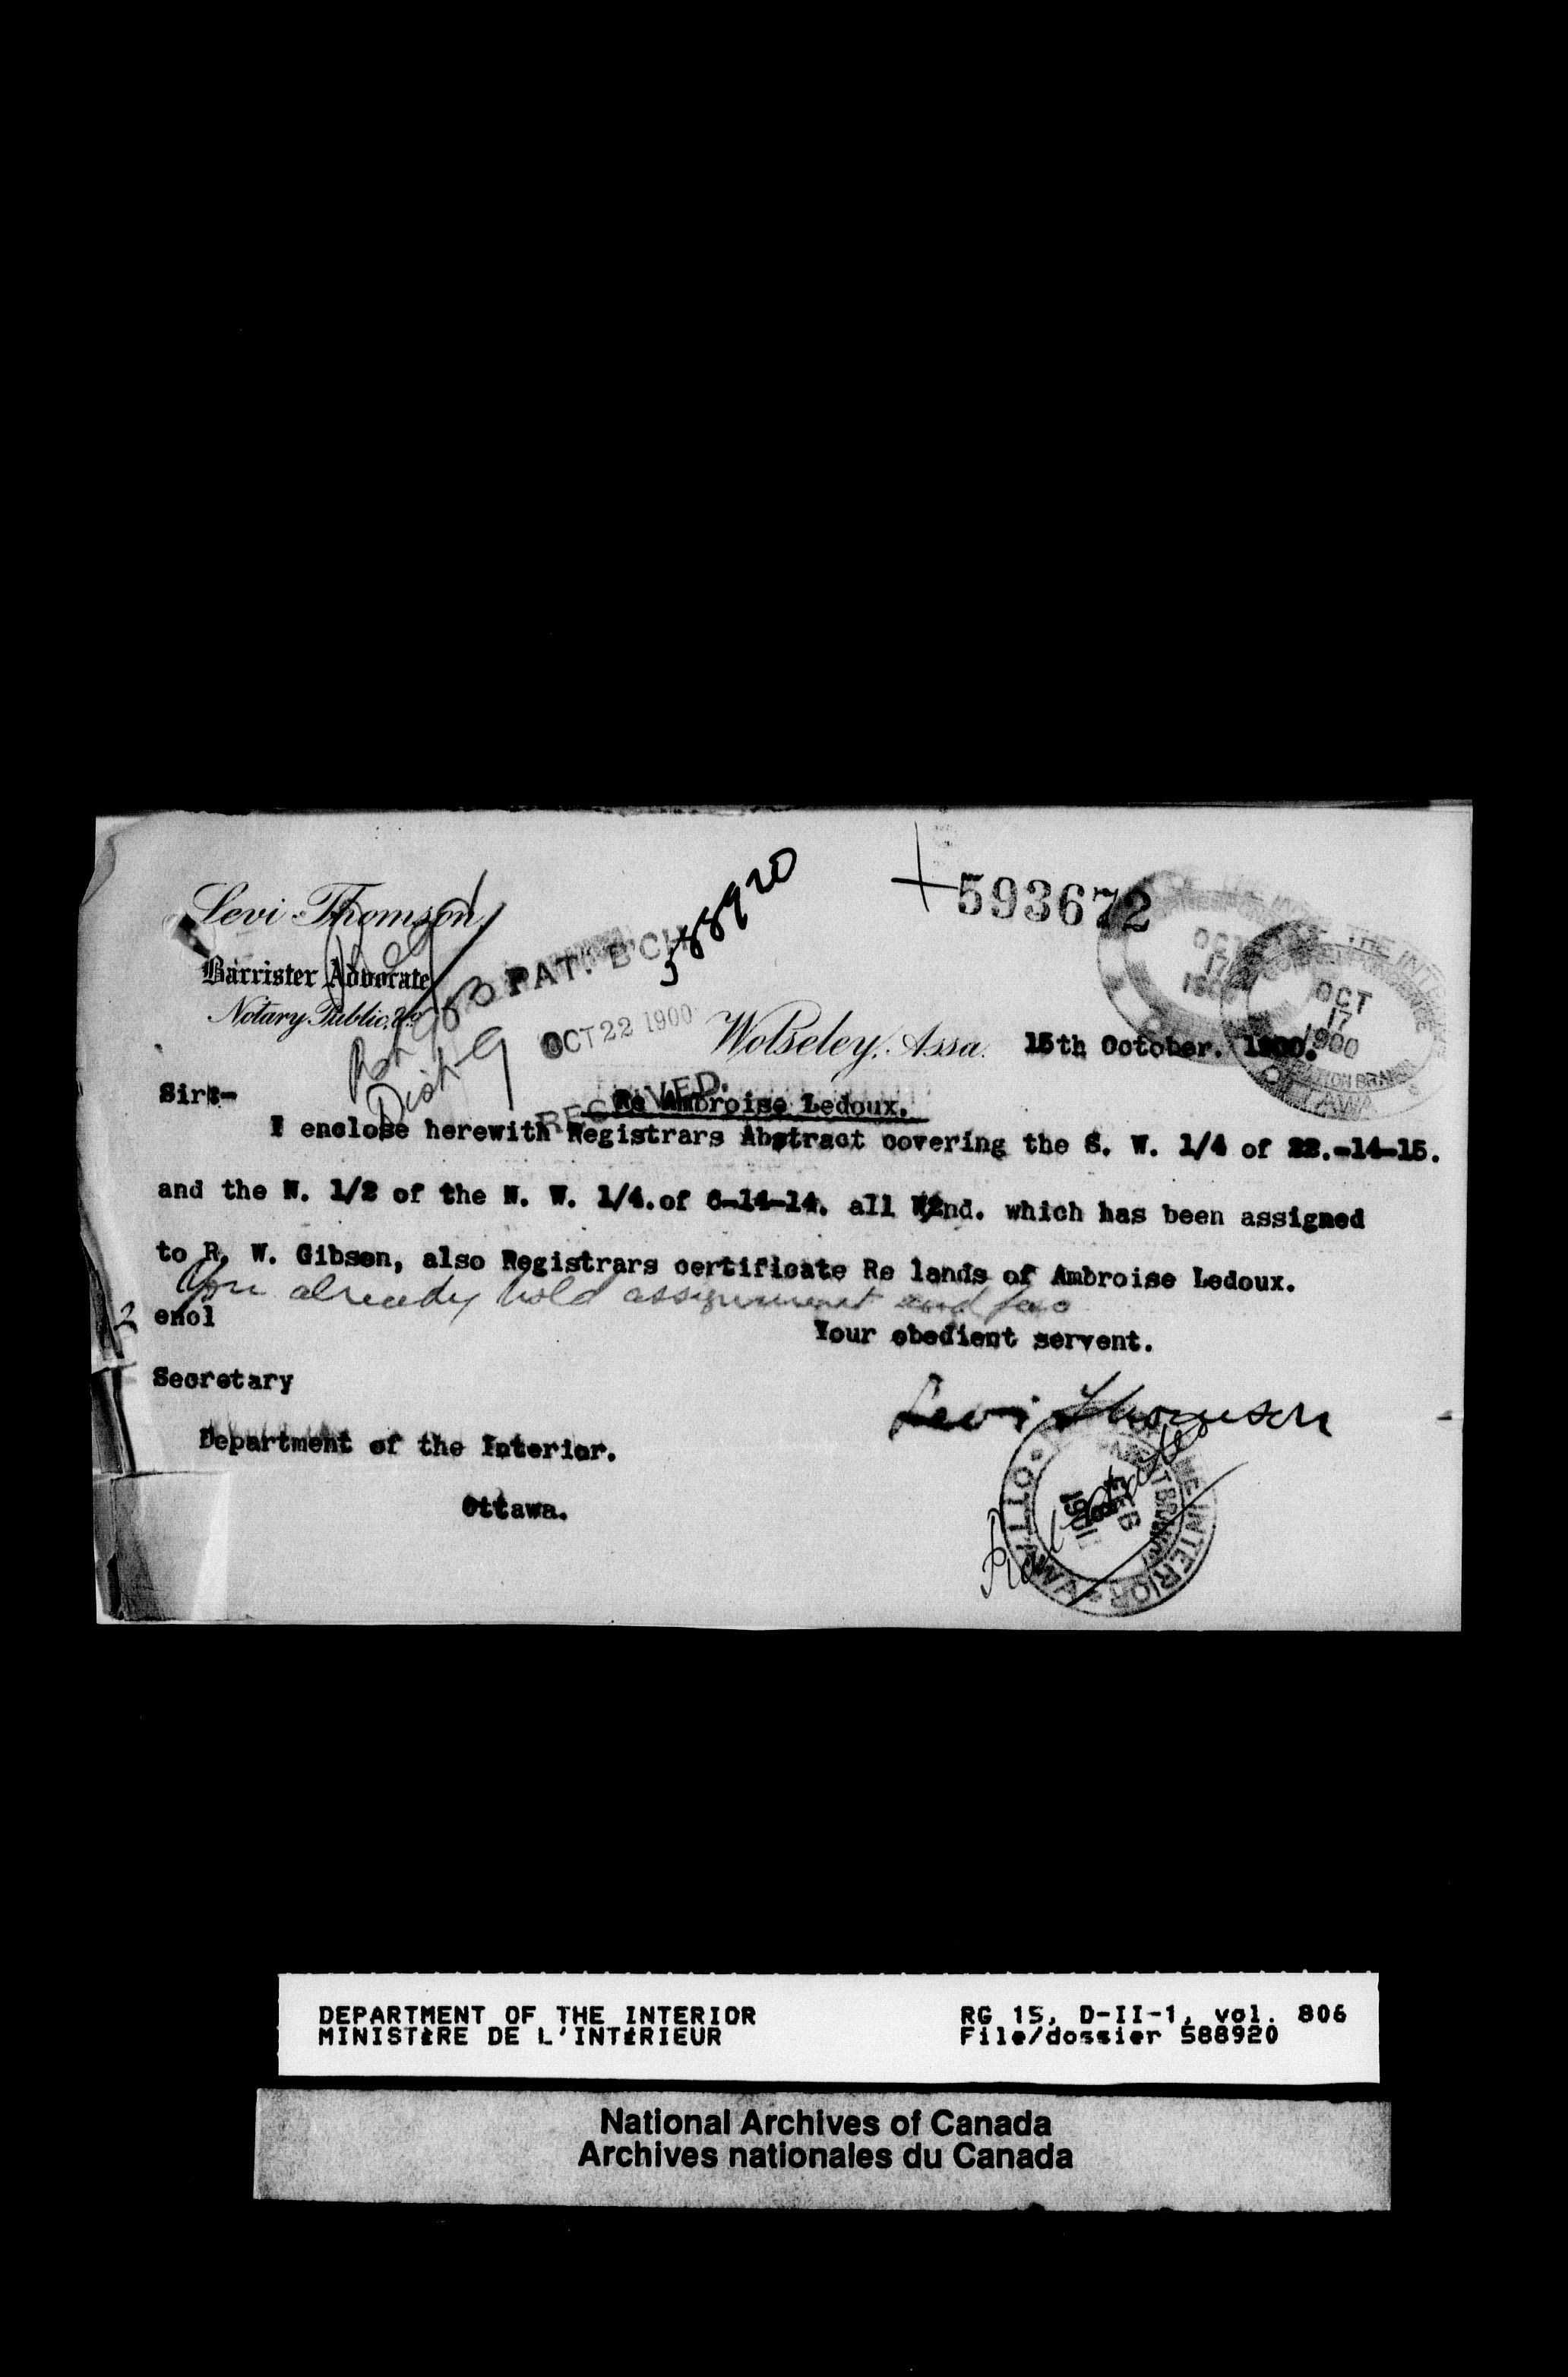 588920
593672
Levi Thomson,
Barrister Advocate
Notary Public, &c.
PAT. B'CH
OCT 22 1900
RECEIVED.
OCT
17
1900
OTTAWA
Wolseley, Assa. 15th October. 1900.
Sir:-
Re Ambroise Ledoux.
I enclose herewith Registrars Abstract covering the S. W. 1/4 of 22.-14-15.
and the N. 1/2 of the N. W. 1/4.of 6-14-14. all W2nd. which has been assigned
to R. W. Gibson, also Registrars certificate Re lands of Ambroise Ledoux.
You already hold assignment and fee
2 encl
Your obedient servent.
Secretary
Levi Thomson
Department of the Interior.
Ottawa.
FEB
1901
INTERIOR
OTTAWA
DEPARTMENT OF THE INTERIOR RG 15, D-II-1, vol. 806
MINISTÈRE DE L'INTÉRIEUR File/dossier 588920
National Archives of Canada
Archives nationales du Canada